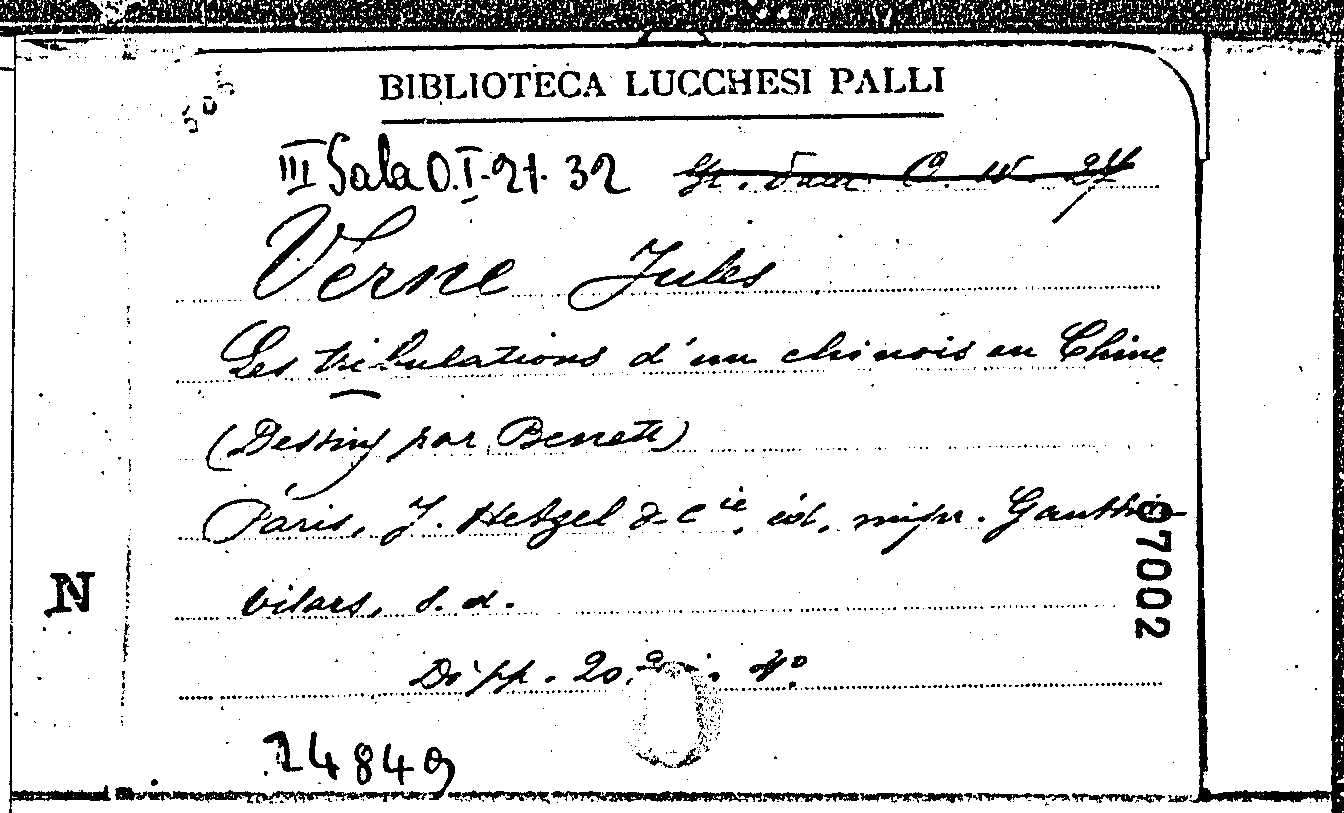 BIBLIOTECA LUCCHESI PALLI
III Sala O.I.21.32
Verne Jules
Les tribulations d'un chinois en Chine
(Dessins par Benett)
Paris, J. Hetzel & Cie, éd, impr. Gauthier
Vilars, s. d.
Di pp. 20 4°
07002
N
14849